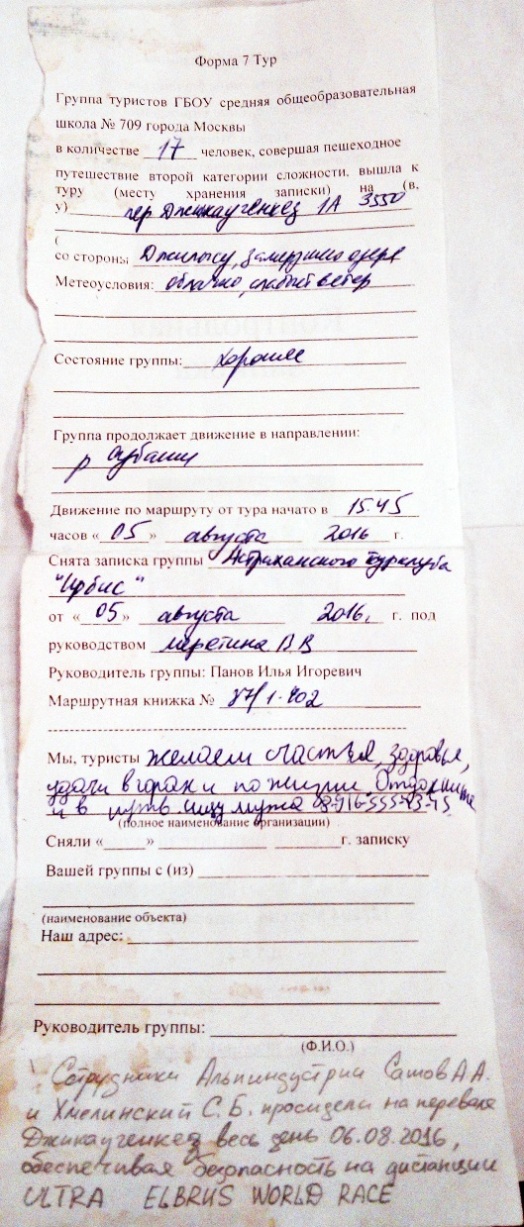 Форма 7 Тур
Группа туристов ГБОУ средняя общеобразовательная
школа № 709 города Москвы
в количестве 17 человек, совершая пешеходное
путешествие второй категории сложности, вышла к
туру (месту хранения записки) на (в,
у) пер Джикаугенкез 1А 3550
(
со стороны Джилысу, замерзшего озера
Метеоусловия: облачно, слабый ветер
Состояние группы: хорошее
Группа продолжает движение в направлении:
р Субаши
Движение по маршруту от тура начато в 15.45
часов «05» августа 2016 г.
Снята записка группы Астраханского турклуба
"Ирбис"
от «05» августа 2016, г. под
руководством В В
Руководитель группы: Панов Илья Игоревич
Маршрутная книжка №
Мы, туристы желаем счастья, здоровья,
удачи в горах и по жизни. Отдохните
и в путь. ищу мужа
(полное наименование организации)
Сняли « » г. записку
Вашей группы с (из)
(наименование объекта)
Наш адрес:
Руководитель группы:
(Ф.И.О.)
Сотрудники Альпиндустрии Сатов А А.
и Хмелинский С. Б. просидели на перевале
Джикаугенкез весь день 06.08.2016,
обеспечивая безопасность на дистанции
ULTRA ELBRUS WORLD RACE